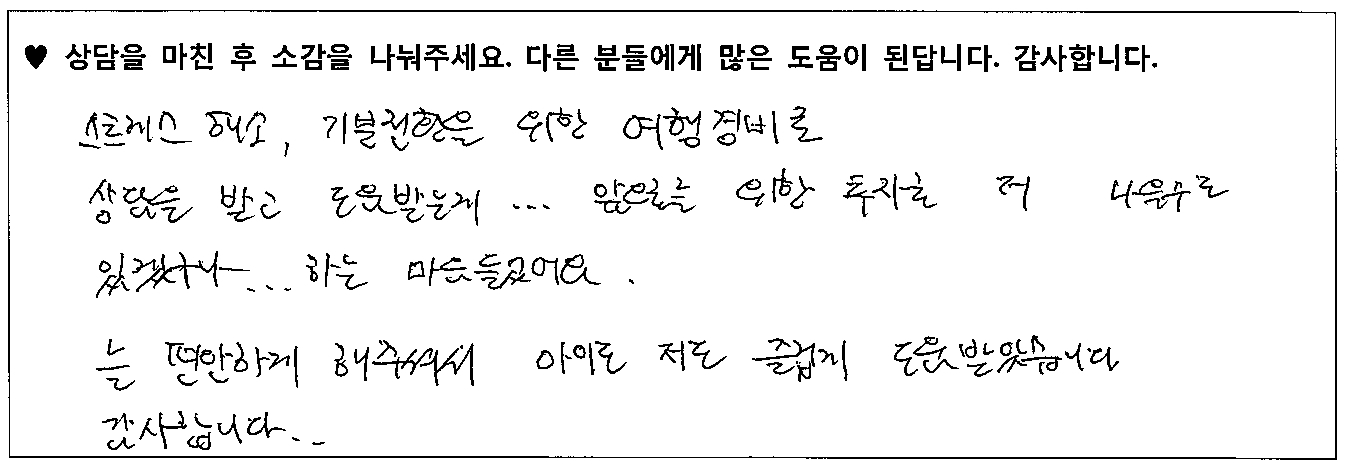 ♥ 상담을 마친 후 소감을 나눠주세요. 다른 분들에게 많은 도움이 된답니다. 감사합니다.
스트레스 해소, 기분전환을 위한 여행경비로
상담을 받고 도움받는게 ... 앞일을 위한 투자로 더 나을수도
있겠구나... 하는 마음들었어요.
늘 편안하게 해주셔서 아이도 저도 즐겁게 도움받았습니다
감사합니다..